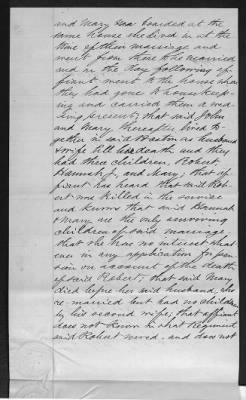 and Mary was boarded at the
same house she lived in at the
time of their marriage and
went from there to be married
and in the day following af-
fiant went to the house where
they had gone to housekeep-
ing and carried them a wed-
ding present; that said John
and Mary thereafter lived to-
gether in said as husband
& wife till her death, and they
had three children, Robert,
Hannah J, and Mary; that af-
fiant has heard that said Rob-
ert was killed in the service
and knows that said Hannah
& Mary are the only surviving
children of said marriage
that she has no interest what
ever in any application for pen-
sion on account of the death
of said Robert; that said Mary
died before her said husband, who
re-married but had no children
by his second wife; that affiant
does not know in what Regiment
said Robert served, and does not